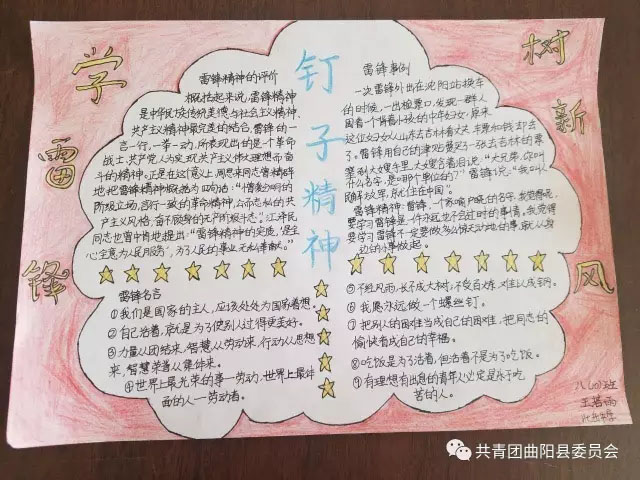 学雷锋
树新风
钉子精神
雷锋精神的评价
概括起来说,雷锋精神
是中华民族传统美德与社会主义精神、
共产主义精神最完美的结合,雷锋的一
言一行,一举一动,所表现出的是一个革命
战士,共产党人为实现共产主义伟大理想而奋
斗的精神。正是在这意义上,周恩来同志曾精辟
地把雷锋精神概括为四句话:“憎爱分明的
阶级立场,言行一致的革命精神,公而忘私的共
产主义风格,奋不顾身的无产阶级斗志”。江泽民
同志也曾中肯地提出:“雷锋精神的实质,是全
心全意为人民服务,为了人民的事业无私奉献。”
雷锋事例
一次雷锋外出在沈阳站换车
的时候,一出检票口,发现一群人
围着一个背着小孩的中年妇女,原来
这位妇女从山东去吉林看丈夫,车票和钱却丢
了。雷锋用自己的津贴费买了一张去吉林的票
塞到大嫂手里,大嫂含着泪说:“大兄弟,你叫
什么名字,是哪个单位的?”雷锋说:“我叫
解放军,就住在中国”。
雷锋精神:雷锋,一个
要学习雷锋是一件永远也不会过时的事情,我觉得
要学习雷锋不一定要做多么惊天动地的事,就从身
边的小事做起。
雷锋名言
①我们是国家的主人,应该处处为国家着想。
②自己活着,就是为了使别人过得更美好。
③力量从团结来,智慧从劳动来,行动从思想
来,荣誉从集体来。
④世界上最光荣的事—劳动,世界上最体
面的人—劳动者。
⑤不经风雨,长不成大树;不受百炼,难以成钢。
⑥我愿永远做一个螺丝钉。
⑦把别人的困难当成自己的困难,把同志的
愉快看成自己的幸福。
⑧吃饭是为了活着,但活着不是为了吃饭。
⑨有理想有出息的青年人必定是乐于吃
苦的人。
共青团曲阳县委员会